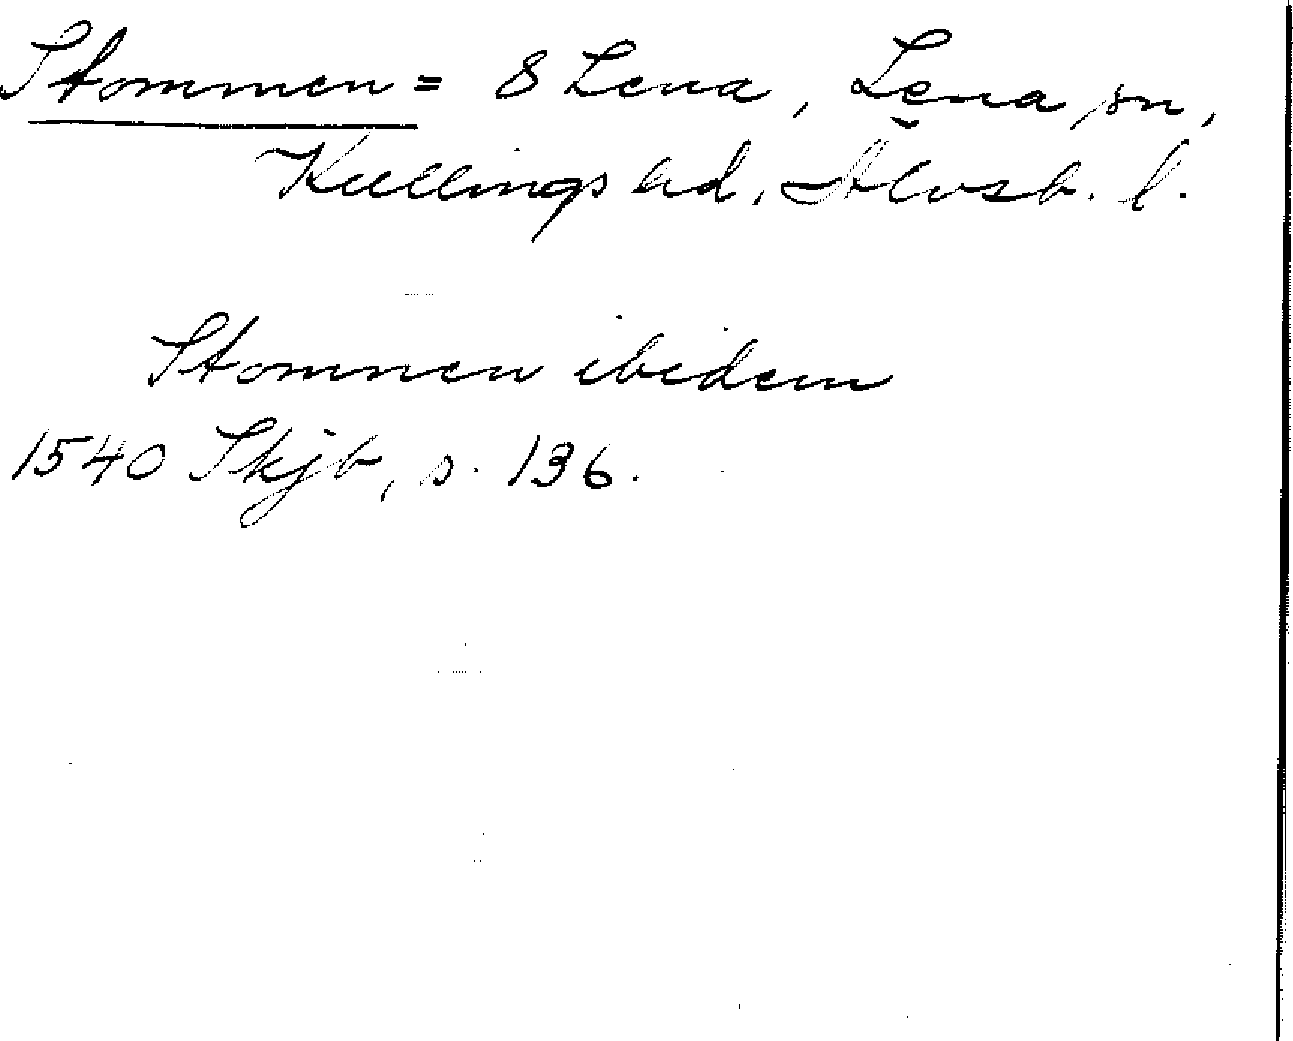 Stommen = 8 Lena, Lena sn,
Kullings hd, Älvsb. l.
Stomnen ibidem
1540 Skjb, s. 136.